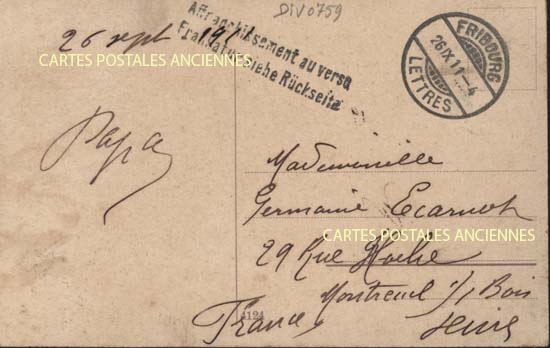 DIV0759
Affranchissement au verso
Frankatur siehe Rückseite
26 sept 1911
CARTES POSTALES ANCIENNES
FRIBOURG
26.IX.11-4
LETTRES
Papa
Mademoiselle
Germaine Ecarnot
CARTES POSTALES ANCIENNES
29 Rue Hoche
Montreuil s/s Bois
4124
France Seine